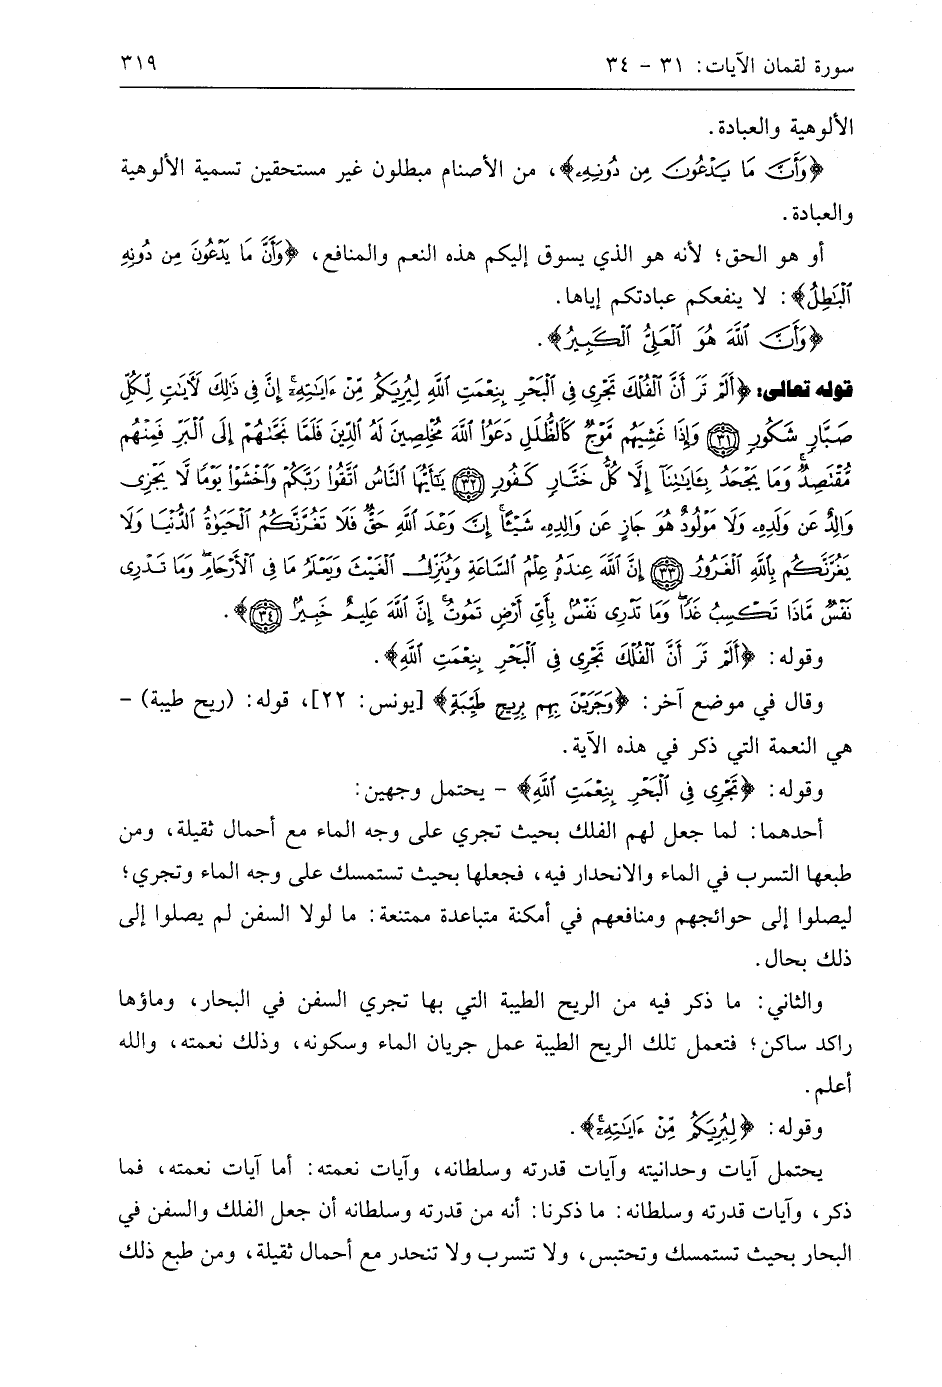 سورة لقمان الآيات: ٣١ - ٣٤ ٣١٩
الألوهية والعبادة.
﴿وَأَنَّ مَا يَدْعُونَ مِن دُونِهِۦ﴾، من الأصنام مبطلون غير مستحقين تسمية الألوهية
والعبادة.
أو هو الحق؛ لأنه هو الذي يسوق إليكم هذه النعم والمنافع، ﴿وَأَنَّ مَا يَدْعُونَ مِن دُونِهِ
ٱلْبَٰطِلُ﴾: لا ينفعكم عبادتكم إياها.
﴿وَأَنَّ ٱللَّهَ هُوَ ٱلْعَلِىُّ ٱلْكَبِيرُ﴾.
قوله تعالى: ﴿أَلَمْ تَرَ أَنَّ ٱلْفُلْكَ تَجْرِى فِى ٱلْبَحْرِ بِنِعْمَتِ ٱللَّهِ لِيُرِيَكُم مِّنْ ءَايَٰتِهِۦٓ إِنَّ فِى ذَٰلِكَ لَأٓيَٰتٍ لِّكُلِّ
صَبَّارٍ شَكُورٍ ﴿٣١﴾ وَإِذَا غَشِيَهُم مَّوْجٌ كَٱلظُّلَلِ دَعَوُا۟ ٱللَّهَ مُخْلِصِينَ لَهُ ٱلدِّينَ فَلَمَّا نَجَّىٰهُمْ إِلَى ٱلْبَرِّ فَمِنْهُم
مُّقْتَصِدٌ وَمَا يَجْحَدُ بِـَٔايَٰتِنَآ إِلَّا كُلُّ خَتَّارٍ كَفُورٍ ﴿٣٢﴾ يَٰٓأَيُّهَا ٱلنَّاسُ ٱتَّقُوا۟ رَبَّكُمْ وَٱخْشَوْا۟ يَوْمًا لَّا يَجْزِى
وَالِدٌ عَن وَلَدِهِۦ وَلَا مَوْلُودٌ هُوَ جَازٍ عَن وَالِدِهِۦ شَيْـًٔا إِنَّ وَعْدَ ٱللَّهِ حَقٌّ فَلَا تَغُرَّنَّكُمُ ٱلْحَيَوٰةُ ٱلدُّنْيَا وَلَا
يَغُرَّنَّكُم بِٱللَّهِ ٱلْغَرُورُ ﴿٣٣﴾ إِنَّ ٱللَّهَ عِندَهُۥ عِلْمُ ٱلسَّاعَةِ وَيُنَزِّلُ ٱلْغَيْثَ وَيَعْلَمُ مَا فِى ٱلْأَرْحَامِ وَمَا تَدْرِى
نَفْسٌ مَّاذَا تَكْسِبُ غَدًا وَمَا تَدْرِى نَفْسٌۢ بِأَىِّ أَرْضٍ تَمُوتُ إِنَّ ٱللَّهَ عَلِيمٌ خَبِيرٌ ﴿٣٤﴾﴾.
وقوله: ﴿أَلَمْ تَرَ أَنَّ ٱلْفُلْكَ تَجْرِى فِى ٱلْبَحْرِ بِنِعْمَتِ ٱللَّهِ﴾.
وقال في موضع آخر: ﴿وَجَرَيْنَ بِهِم بِرِيحٍ طَيِّبَةٍ﴾ [يونس: ٢٢]، قوله: (ريح طيبة) -
هي النعمة التي ذكر في هذه الآية.
وقوله: ﴿تَجْرِى فِى ٱلْبَحْرِ بِنِعْمَتِ ٱللَّهِ﴾ - يحتمل وجهين:
أحدهما: لما جعل لهم الفلك بحيث تجري على وجه الماء مع أحمال ثقيلة، ومن
طبعها التسرب في الماء والانحدار فيه، فجعلها بحيث تستمسك على وجه الماء وتجري؛
ليصلوا إلى حوائجهم ومنافعهم في أمكنة متباعدة ممتنعة: ما لولا السفن لم يصلوا إلى
ذلك بحال.
والثاني: ما ذكر فيه من الريح الطيبة التي بها تجري السفن في البحار، وماؤها
راكد ساكن؛ فتعمل تلك الريح الطيبة عمل جريان الماء وسكونه، وذلك نعمته، والله
أعلم.
وقوله: ﴿لِيُرِيَكُم مِّنْ ءَايَٰتِهِۦٓ﴾.
يحتمل آيات وحدانيته وآيات قدرته وسلطانه، وآيات نعمته: أما آيات نعمته، فما
ذكر، وآيات قدرته وسلطانه: ما ذكرنا: أنه من قدرته وسلطانه أن جعل الفلك والسفن في
البحار بحيث تستمسك وتحتبس، ولا تتسرب ولا تنحدر مع أحمال ثقيلة، ومن طبع ذلك